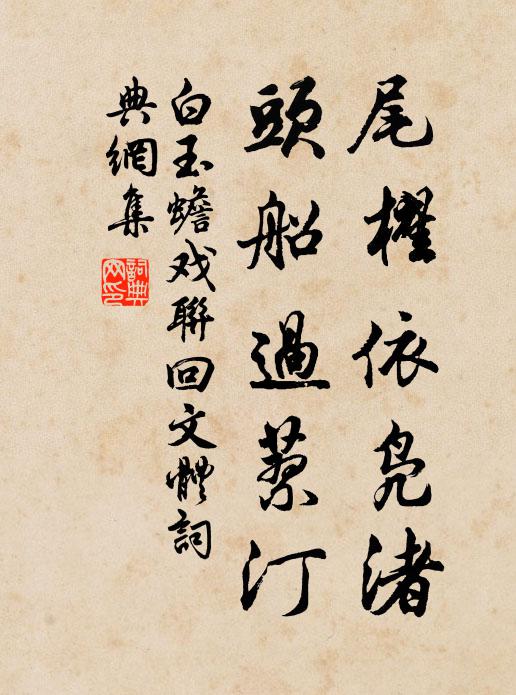 尾櫂依鳧渚
頭船過汀
白玉蟾戏聯回文體詞
典網集
詞典
网印